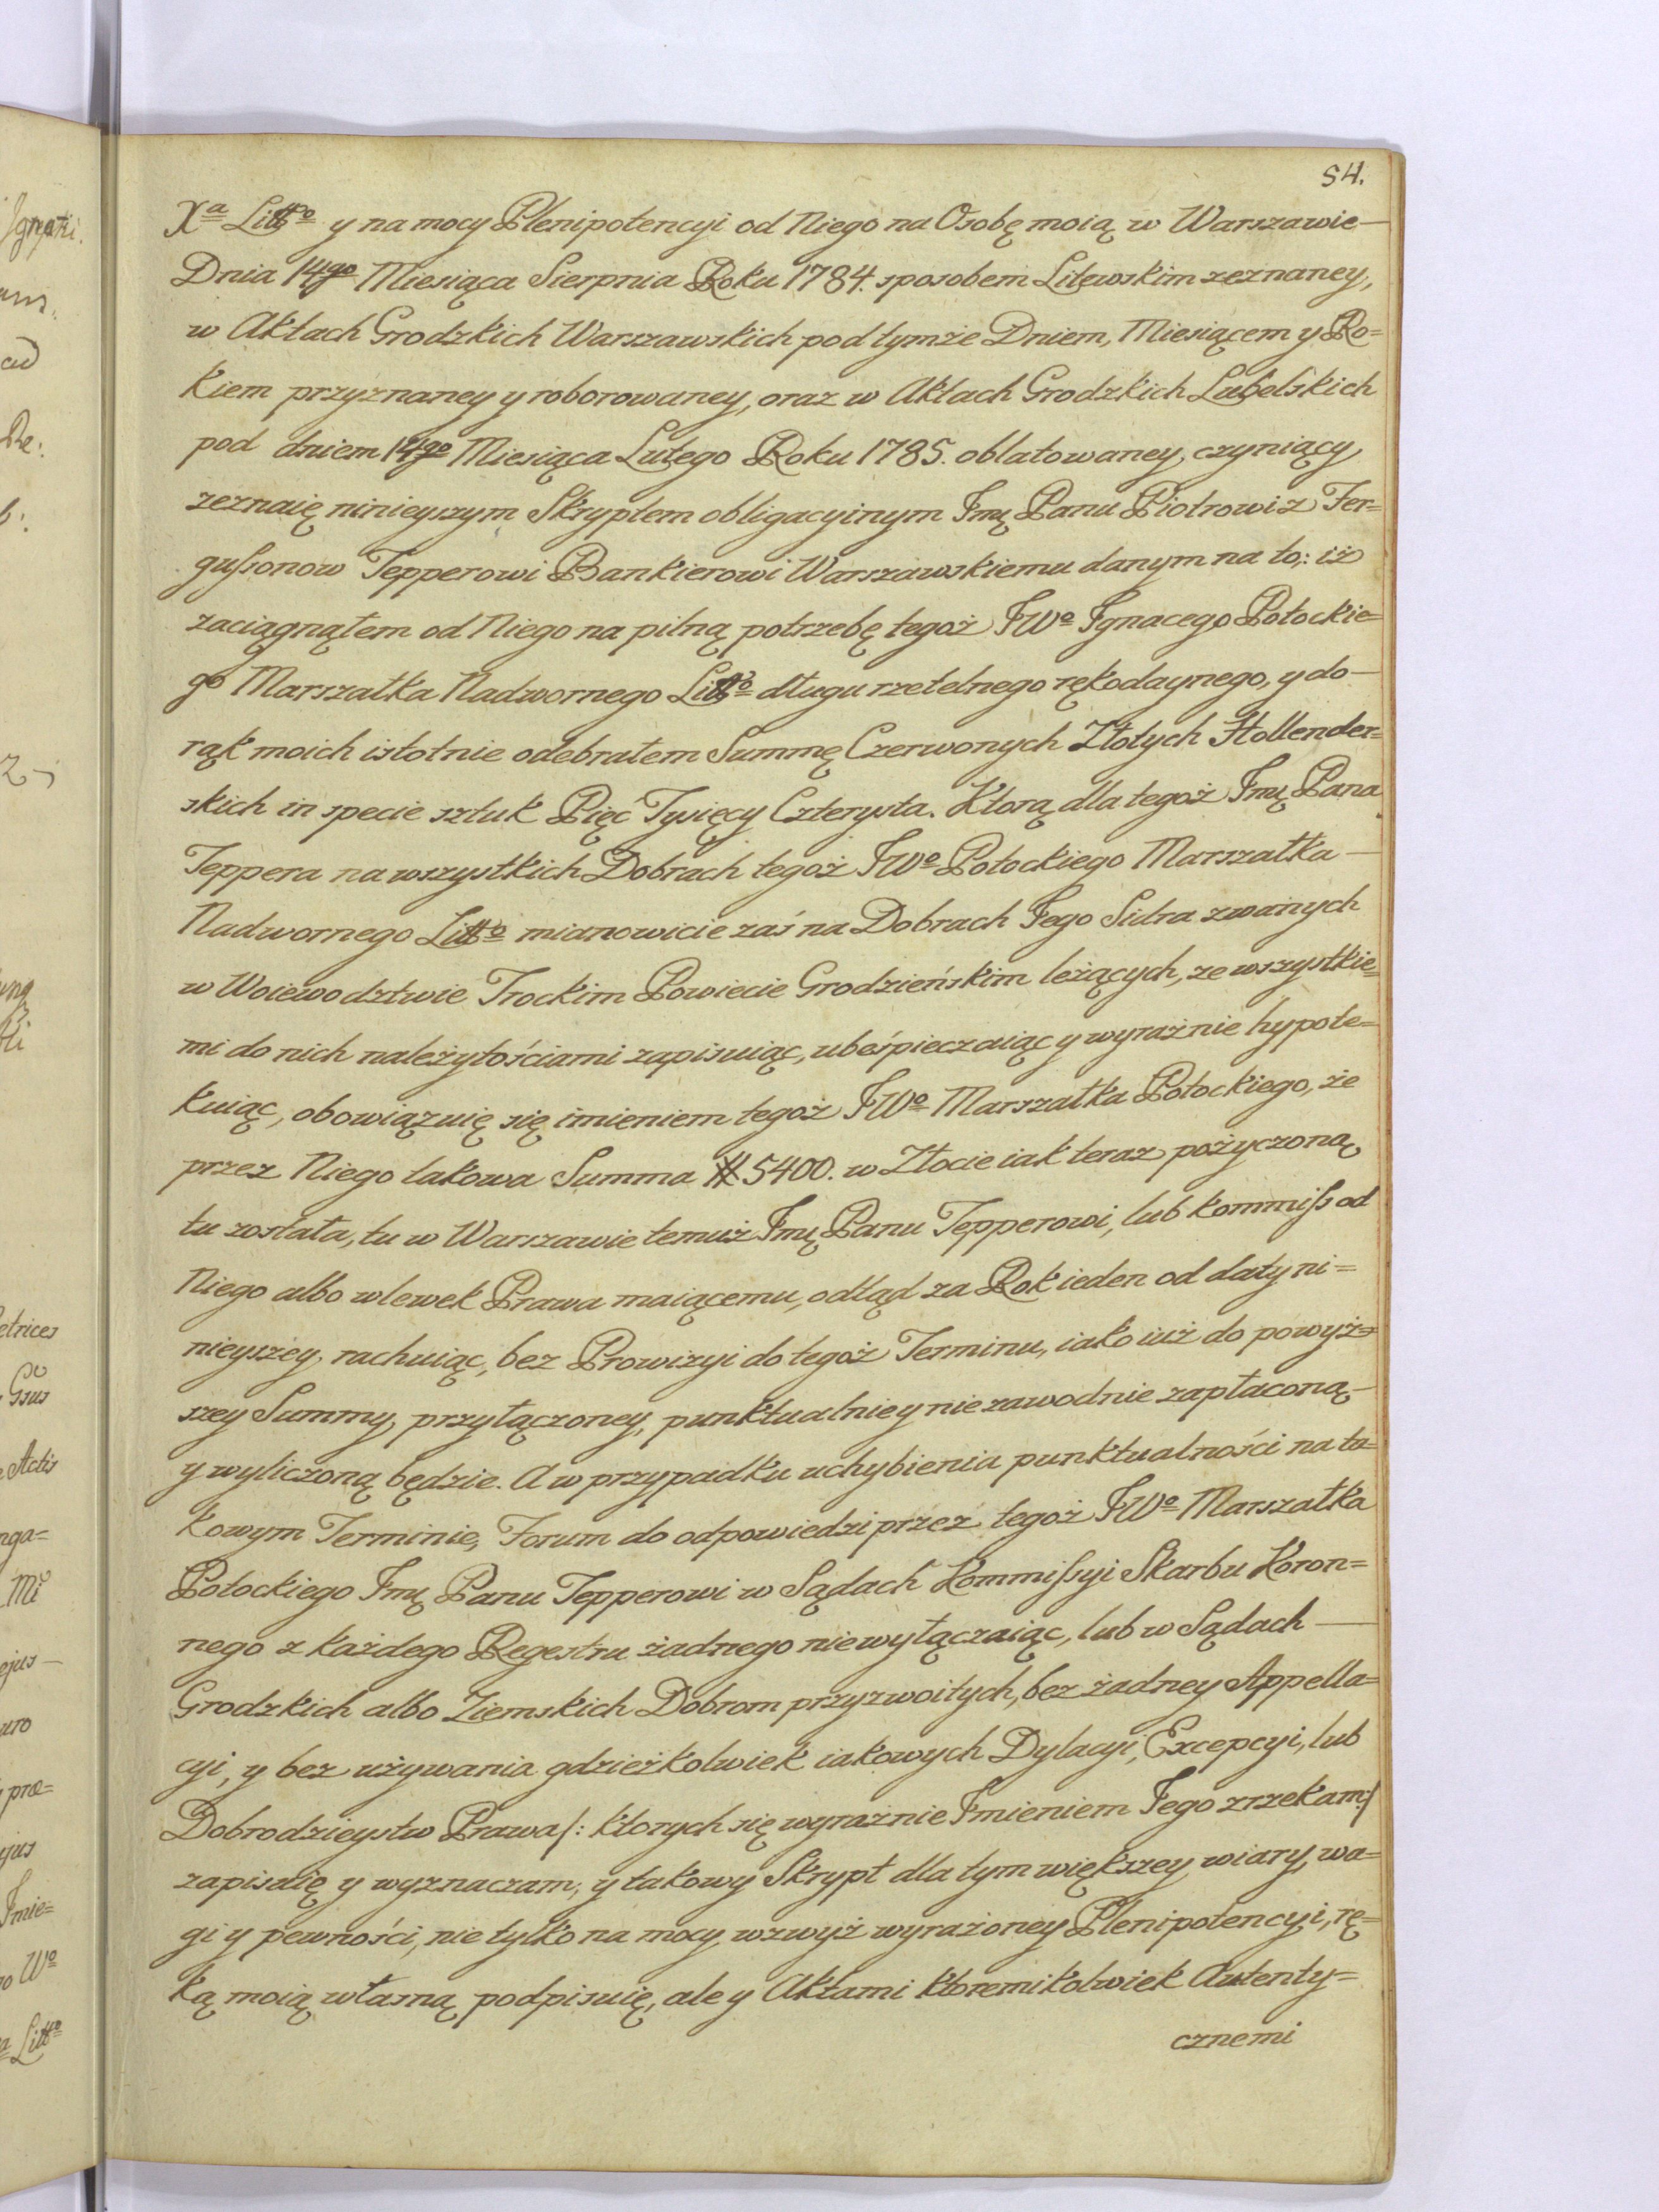 54.
Xa Litto y na mocy Plenipotencyi od Niego na Osobę moią w Warszawie—
Dnia 14go Miesiąca Sierpnia Roku 1784. sposobem Litewskim zeznaney,
w Aktach Grodzkich Warszawskich pod tymże Dniem, Miesiącem y Ro=
kiem przyznaney y roborowaney, oraz w Aktach Grodzkich Lubelskich
pod dniem 14go Miesiąca Lutego Roku 1785. oblatowaney, czyniący
zeznaię ninieyszym Skryptem obligacyinym Jmę Panu Piotrowi z Fer=
gussonow Tepperowi Bankierowi Warszawskiemu danym na to,: iż
zaciągnąłem od Niego na pilną potrzebę tegoż JWo Jgnacego Potockie=
go Marszałka Nadwornego Litto długu rzetelnego rękodaynego, y do—
rąk moich istotnie odebrałem Summę Czerwonych Złotych Hollender=
skich in specie sztuk Pięć Tysięcy Czterysta. Ktorą dla tegoż Jmę Pana
Teppera na wszystkich Dobrach tegoż JWo Potockiego Marszałka—
Nadwornego Litto mianowicie zaś na Dobrach Jego Sidra zwanych
w Woiewodztwie Trockim Powiecie Grodzieńskim leżących, ze wszystkie=
mi do nich należytościami zapisuiąc, ubeśpieczaiąc y wyraźnie hypote=
kuiąc, obowiązuię się imieniem tegoż JWo Marszałka Potockiego, że
przez Niego takowa Summa # 5400. w Złocie iak teraz pożyczoną
tu została, tu w Warszawie temuż Jmę Panu Tepperowi, lub kommiss od
Niego albo wlewek Prawa maiącemu, odtąd za Rok ieden od daty ni=
nieyszey, rachuiąc, bez Prowizyi do tegoż Terminu, iako iuż do powyż=
szey Summy, przyłączoney, punktualnie y niezawodnie zapłaconą—
y wyliczoną będzie. A w przypadku uchybienia punktualności na ta=
kowym Terminie, Forum do odpowiedzi przez tegoż JWo Marszałka
Potockiego Jmę Panu Tepperowi w Sądach Kommissyi Skarbu Koron=
nego z każdego Regestru żadnego niewyłączaiąc, lub w Sądach—
Grodzkich albo Ziemskich Dobrom przyzwoitych, bez żadney Appella=
cyi, y bez używania gdzieżkolwiek iakowych Dylacyi, Excepcyi, lub
Dobrodzieystw Prawa/: ktorych się wyraźnie Jmieniem Jego zrzekam:/
zapisuię y wyznaczam; y takowy Skrypt dla tym większey wiary, wa=
gi y pewności, nie tylko na mocy wzwyż wyrażoney Plenipotencyi, rę=
ką moią własną podpisuię, ale y Aktami ktoremikolwiek Autenty=
cznemi